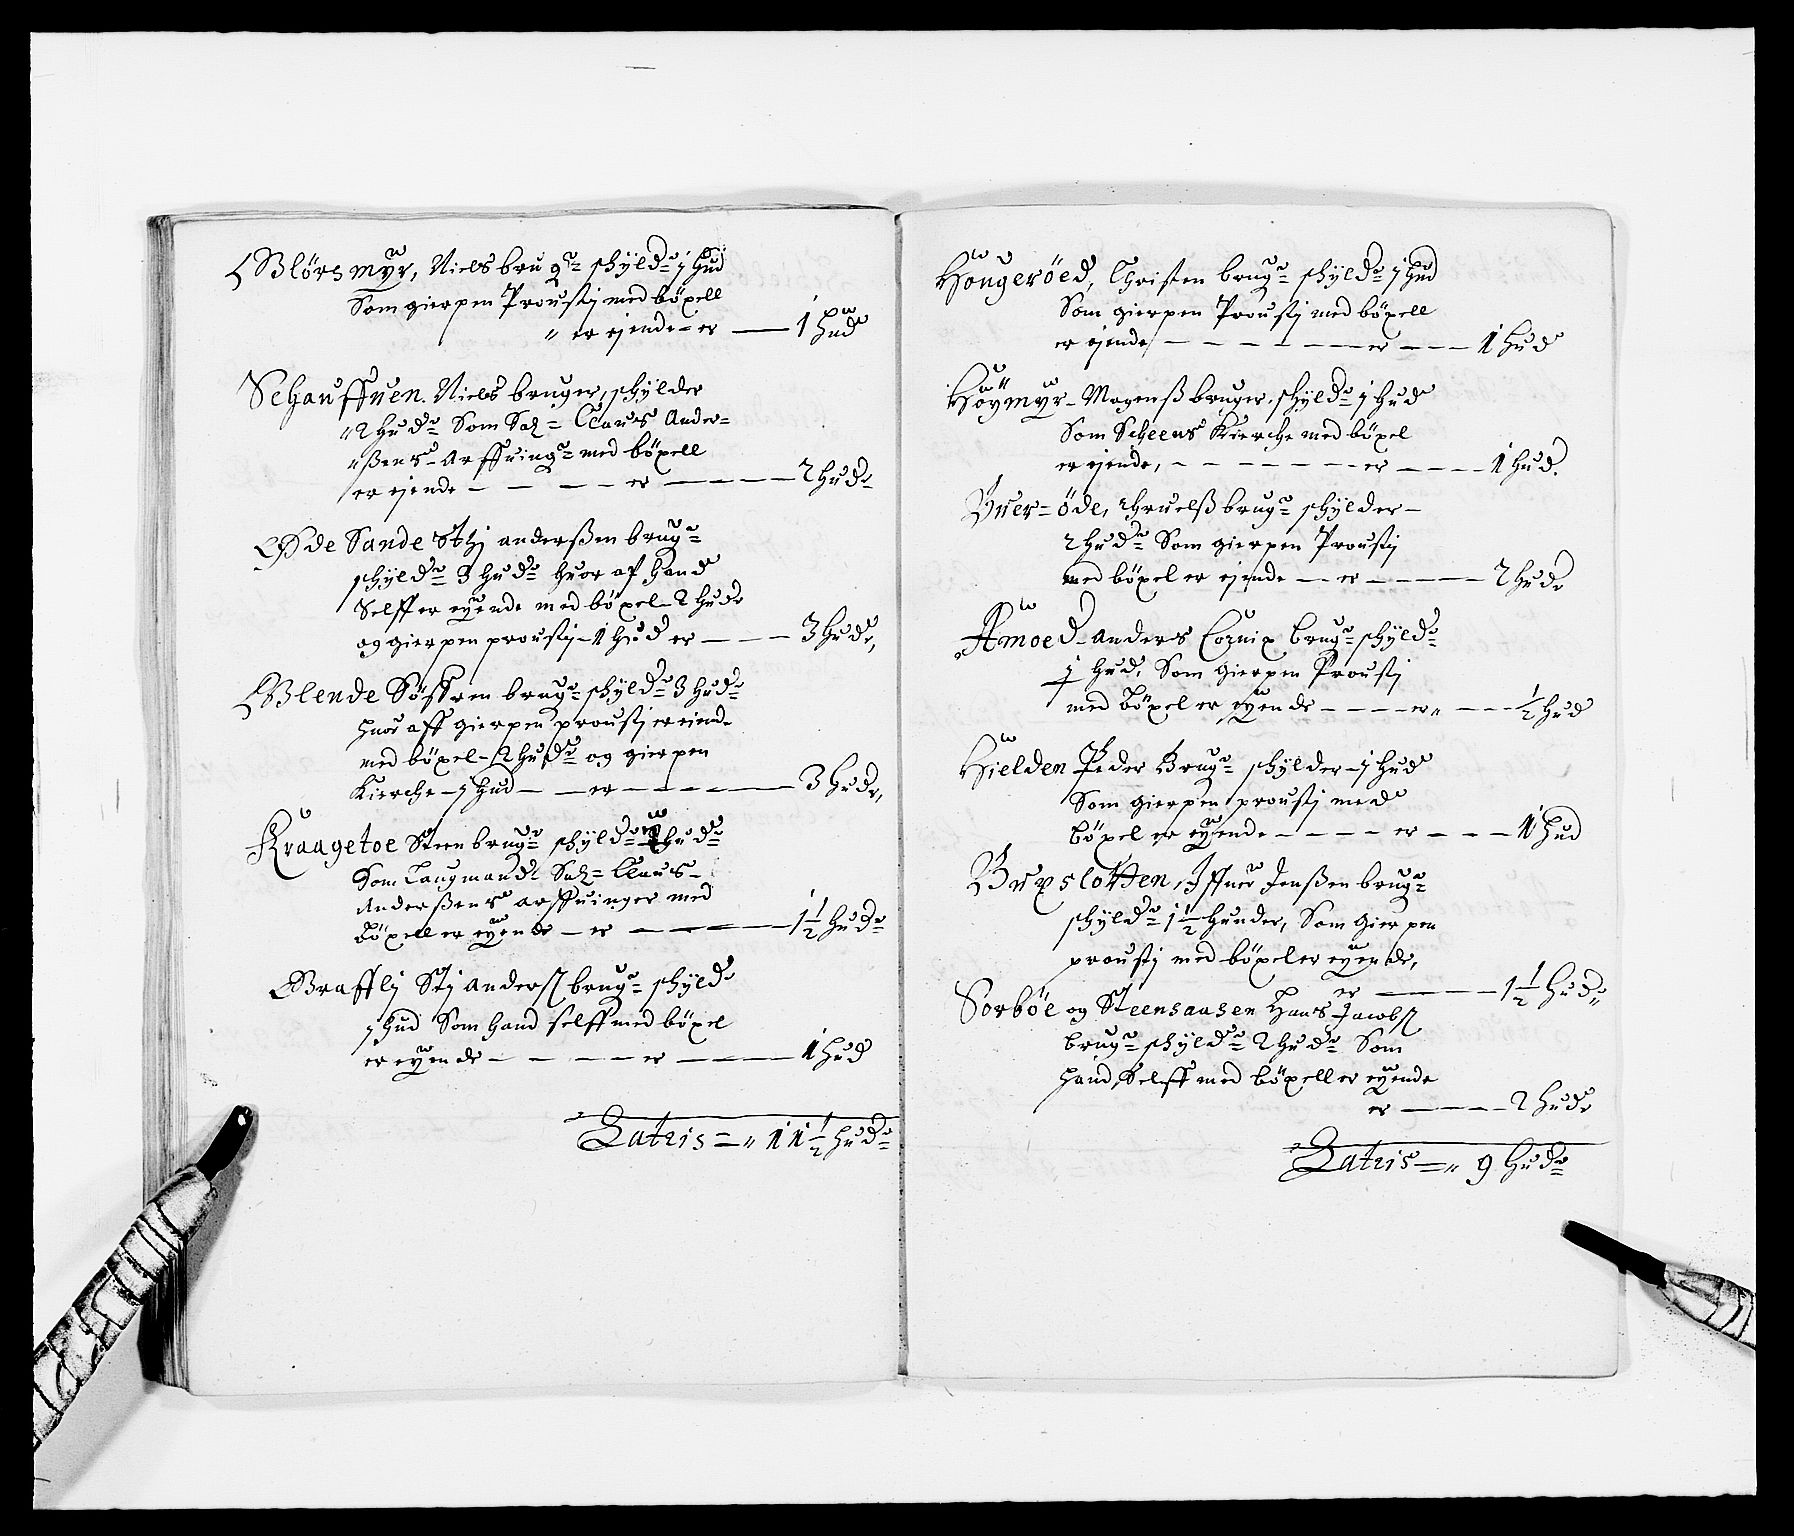 Blörs myr, Niels brugr schyldr 1 hud
Som gierpen Proustj med böxell
er ejende er 1 hud
Schauffuen. Niels bruger, schylder
2 hudr Som Sal= Claus Ander=
ßens Arffuingr med böxell
er ejende er 2 hudr
Øde Sande Stj anderßen brugr
schyldr 3 hudr huor af hand
Selff er eyende med böxel 2 hudr
og gierpen proustj 1 hud er 3 hudr,
Blende Söffren brugr schyldr 3 hudr
huor aff gierpen proustj er eiende
med böxel 2 hudr og gierpen
Kierche 1 hud er 3 hudr,
Kraagetoe Steen brugr schyldr hudr
Som Laugmand Sal= Claus
Anderßens arffuinger med
böxell er eyende er 1 1/2 hudr
Grafflj Stj anderß brugr schyldr
1 hud Som hand selff med böxel
er eyende er 1 hud
Latris = 11 1/2 hudr
Hougeröed, Christen brugr schyldr 1 hud
Som gierpen Proustj med böxell
er ejende er 1 hud
Höymyr Mogenß bruger, schyldr 1 hud
Som Scheens Kierche med böxel
er ejende, er 1 hud.
öde, brugr schylder
2 hudr Som gierpen Proustj
med böxel er ejende er 2 hudr
Amoed anders brugr schyldr
1/2 hud, Som gierpen Proustj
med böxel er eyende er 1/2 hud
Hielden Peder Brugr schylder 1 hud
Som gierpen proustj med
böxel er eyende er 1 hud
Iffuer Jenßen brugr
schyldr 1 1/2 hunder, Som gierpen
proustj med böxel er eyende,
er 1 1/2 hudr
Sorböe og Steensaasen Hans Jacobß
brugr schyldr 2 hudr Som
hand Selff med böxell er eyende
er 2 hudr
Latris = 9 hudr